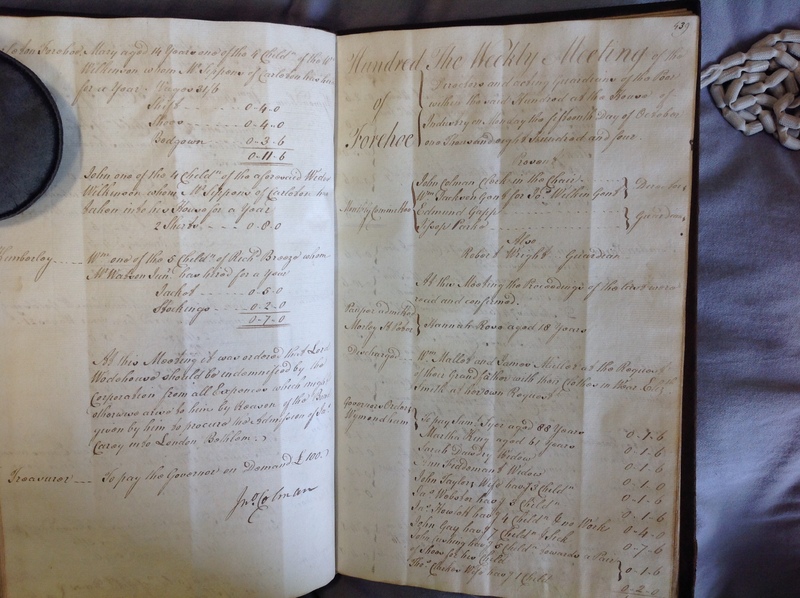 Carleton Forehoe Mary aged 14 Years one of the 4 Childn. of the Wo.
Wilkinson whom Mr. Sippons of Carleton has hir
for a Year. Wages 31/6
Shift 0-4-0
Shoes 0-4-0
Bedgown 0-3-6
0-11-6
John one of the 4 Childn. of the aforesaid Widow
Wilkinson whom Mr. Sippons of Carleton has
taken into his House for a Year
2 Shirts 0-8-0
Kimberley Wm. one of the 5 Childn. of Richd. Breeze whom
Mr. Watson Junr. has hired for a Year
Jacket 0-5-0
Stockings 0-2-0
0-7-0
At this Meeting it was ordered that Lord
Wodehouse should be indemnified by the
Corporation from all Expences which might
otherwise arise to him by Reason of the Bond
given by him to procure the Admission of Js.
Carey into London, Bethlem.
Treasurer To pay the Governor on Demand £100.
Jno. Colman
439
Hundred of Forehoe
The Weekly Meeting of the
Directors and acting Guardians of the Poor
within the said Hundred at the House of
Industry on Monday the fifteenth Day of October
one Thousand eight Hundred and four.
Present
Weekly Committee
John Colman Clerk in the Chair
Wm. Jackson Gent for Jo. Wilkin Gent
Directors
Edmund Gapp
Jessop Parke
Guardians
Also
Robert Wright Guardian
At this Meeting the Proceedings of the last were
read and confirmed.
Pauper admitted
Morley St. Peter
Hannah Rose aged 18 Years
Discharged Wm. Mallet and James Mallet at the Request
of their Grandfather with their Clothes in them Eliz.th
Smith at her own Request
Governors Orders
Wymondham
To pay Saml. Tyer aged 88 Years 0-1-6
Martha King aged 61 Years 0-1-6
Sarah Dawdry Widow 0-1-6
Ann Widow 0-1-0
John Taylors Wife has 3 Childn. 0-1-6
Jas. Webster has 3 Childn. 0-1-6
Jn. Howlett has 4 Childn. & no Work 0-4-0
John Gay has 7 Childn. & Sick 0-7-6
John Cushing has 5 Childn. towards a Pair
of Shoes for his Child 0-1-6
Thos. Clarkes Wife has 1 Child 0-2-0